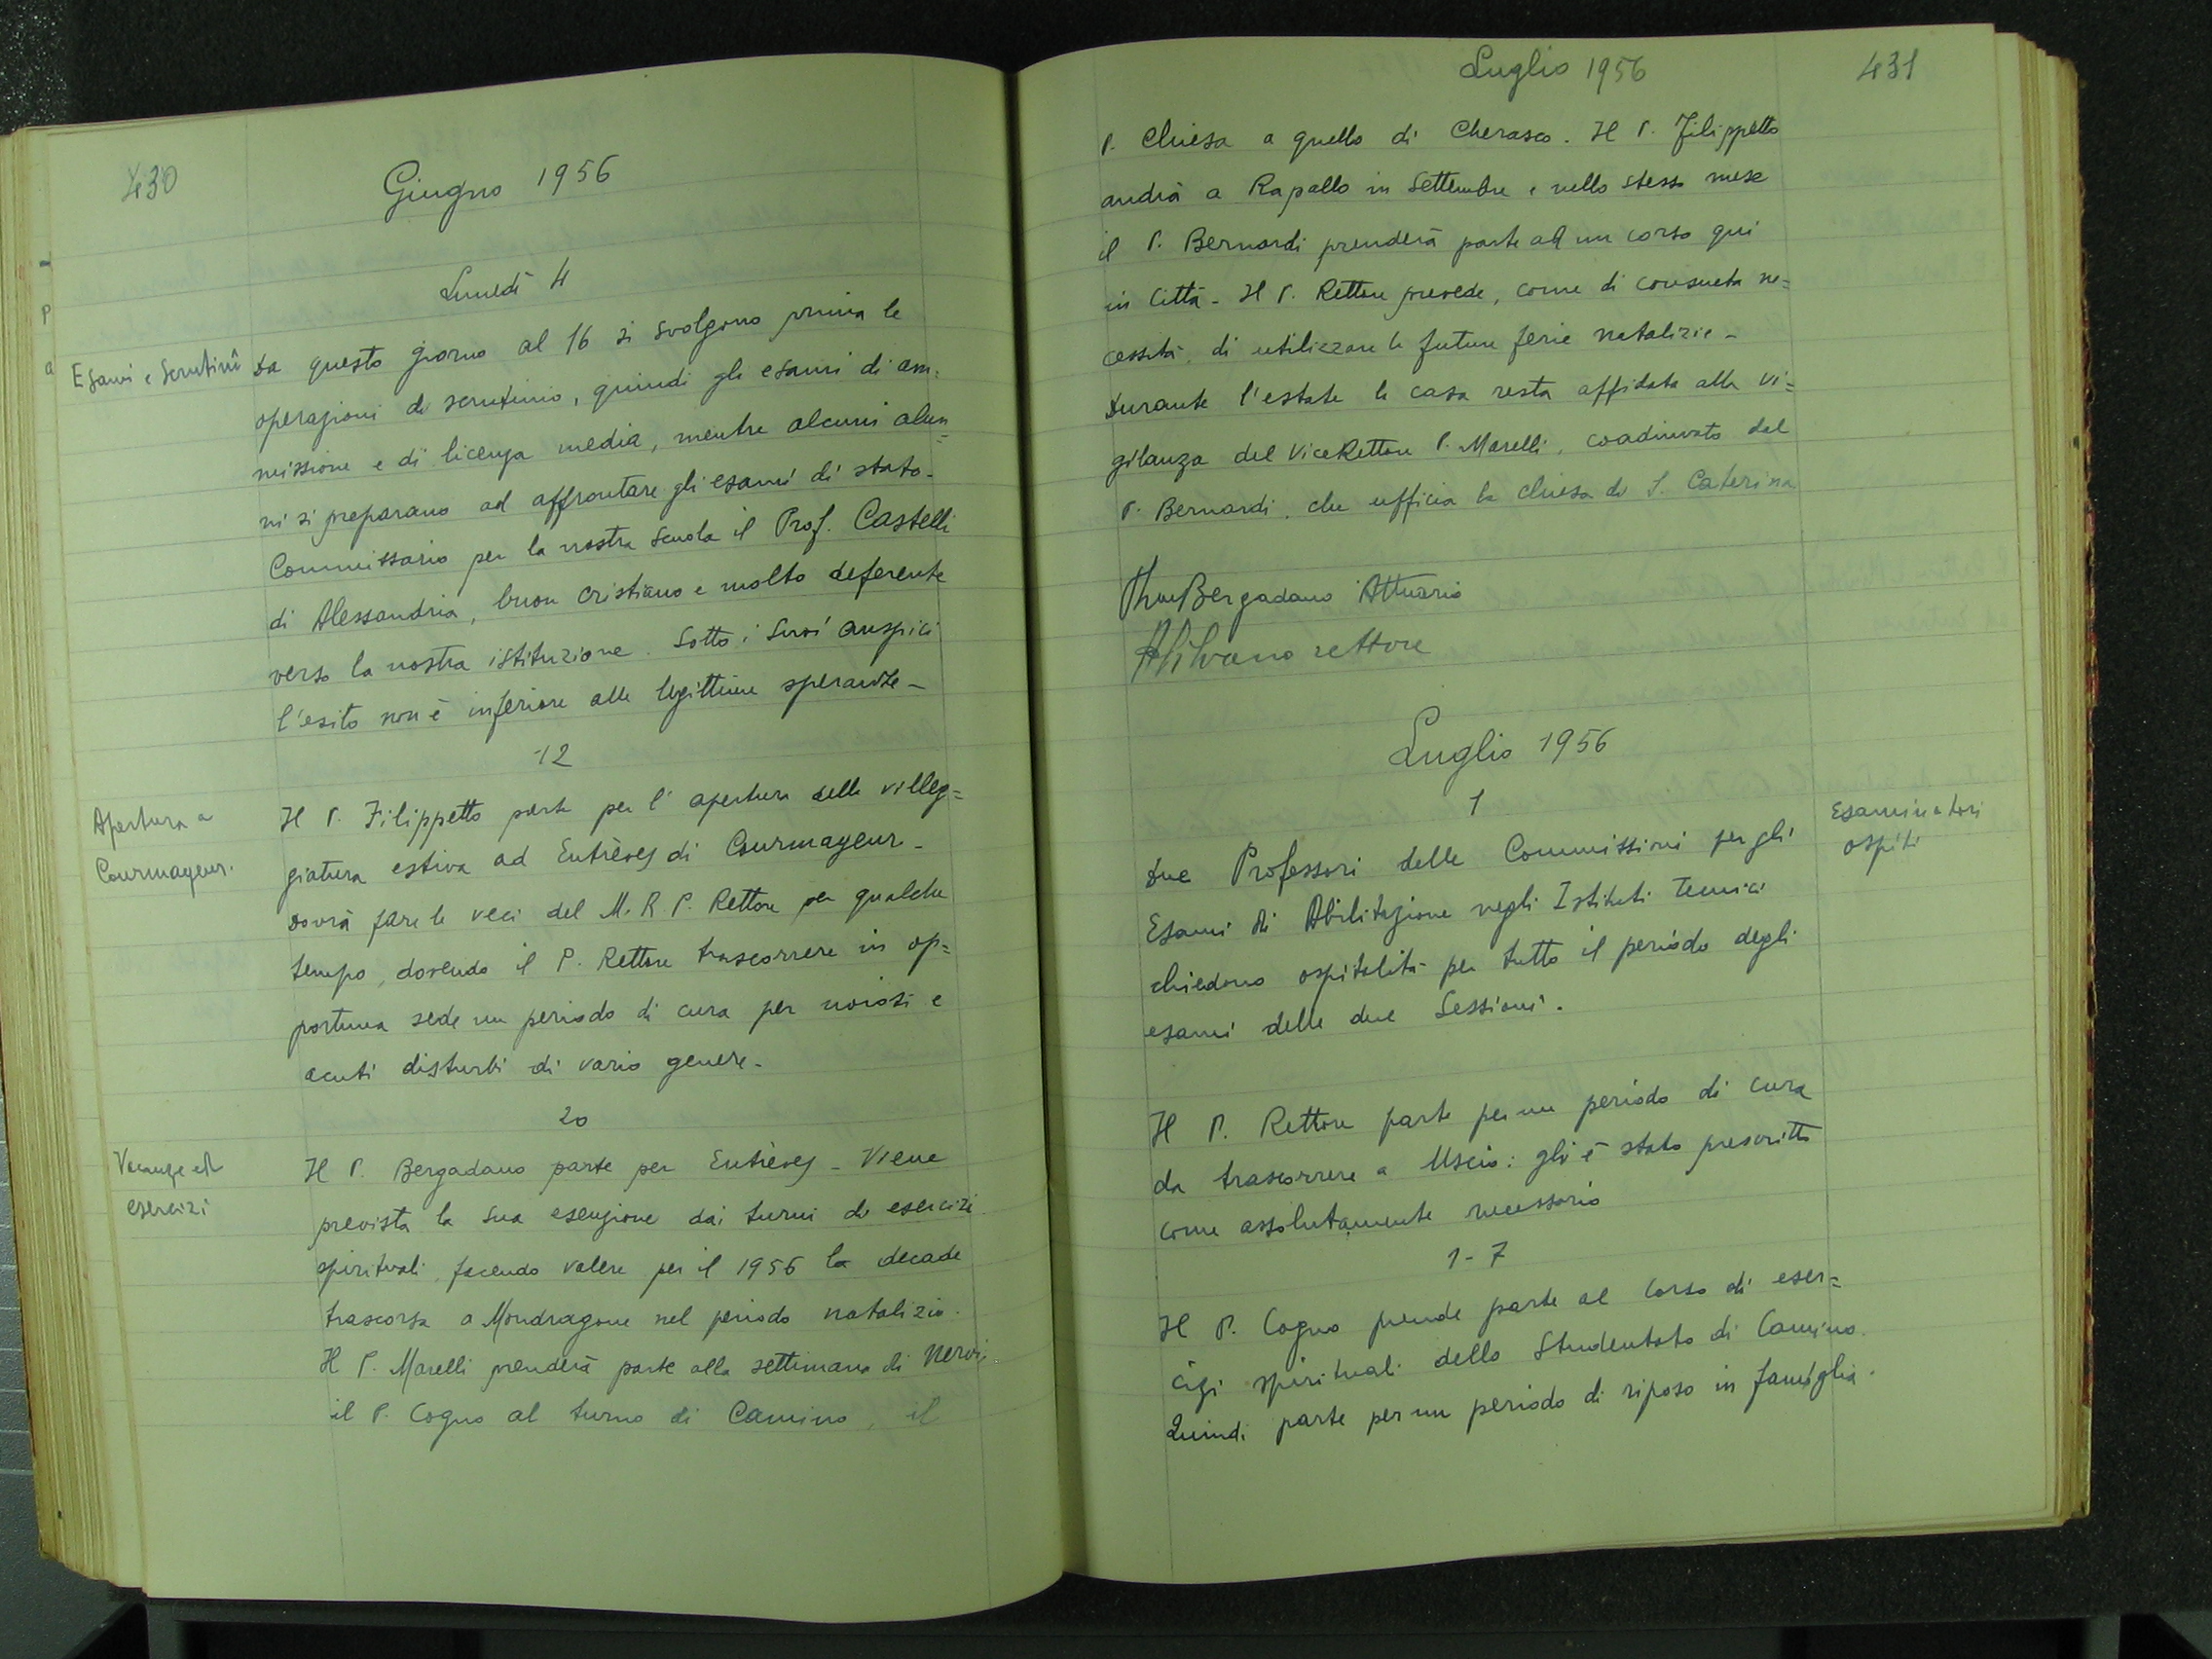 430
Giugno 1956
Lunedì 4
Esami e Scrutinî
Da questo giorno al 16 si svolgono prima le
operazioni di scrutinio, quindi gli esami di am=
missione e di licenza media, mentre alcuni alun=
ni si preparano ad affrontare gli esami di stato.
Commissario per la nostra Scuola il Prof. Castelli
di Alessandria, buon cristiano e molto deferente
verso la nostra istituzione. Sotto i suoi auspici
l'esito non è inferiore alle legittime speranze -
12
Apertura a
Courmayeur.
Il P. Filippetto parte per l'apertura della villeg=
giatura estiva ad Entrèves di Courmayeur -
Dovrà fare le veci del M. R. P. Rettore per qualche
tempo, dovendo il P. Rettore trascorrere in op=
portuna sede un periodo di cura per noiosi e
acuti disturbi di vario genere -
20
Vacanze ed
esercizi
Il P. Bergadano parte per Entrèves - Viene
prevista la sua esenzione dai turni di esercizi
spirituali, facendo valere per il 1956 la decade
trascorsa a Mondragone nel periodo natalizio.
Il P. Marelli prenderà parte alla settimana di Nervi,
il P. Cogno al turno di Camino, il
Luglio 1956
431
P. Chiesa a quello di Cherasco. Il P. Filippetto
andrà a Rapallo in Settembre e nello stesso mese
il P. Bernardi prenderà parte ad un corso qui
in Città - Il P. Rettore prevede, come di consueta ne=
cessità, di utilizzare le future ferie natalizie -
Durante l'estate la casa resta affidata alla vi=
gilanza del ViceRettore P. Marelli, coadiuvato dal
P. Bernardi, che ufficia la chiesa di S. Caterina
Bergadano Attuario
rettore
Luglio 1956
1
Esaminatori
ospiti
Due Professori delle Commissioni per gli
Esami di Abilitazione negli Istituti Tecnici
chiedono ospitalità per tutto il periodo degli
esami delle due Sessioni.
Il P. Rettore parte per un periodo di cura
da trascorrere a Uscio: gli è stato prescritto
come assolutamente necessario
1 - 7
Il P. Cogno prende parte al corso di eser=
cizi spirituali dello Studentato di Camino.
Quindi parte per un periodo di riposo in famiglia.